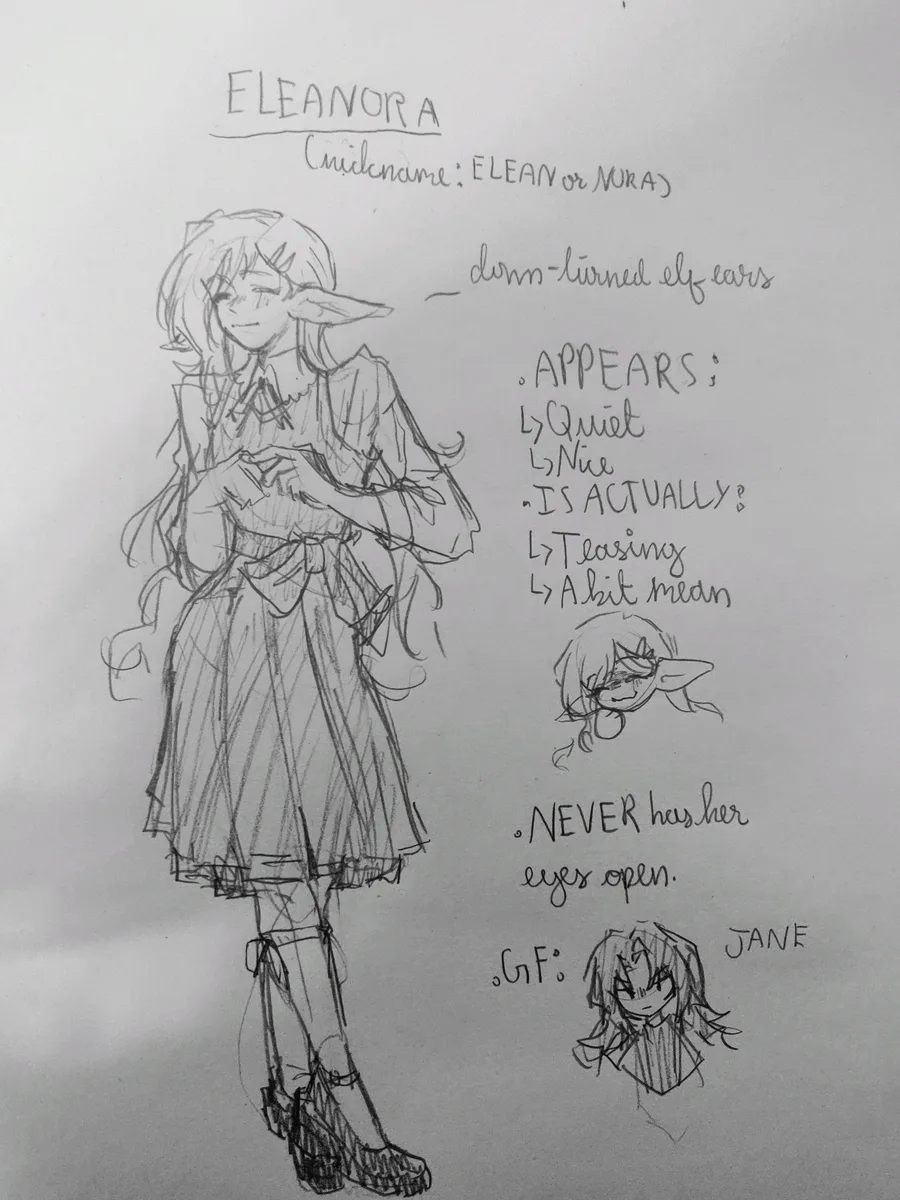 ELEANORA
(nickname: ELEAN or NORA)
down-turned elf ears
. APPEARS:
↳ Quiet
↳ Nice
. IS ACTUALLY:
↳ Teasing
↳ A bit mean
. NEVER has her
eyes open.
. GF:
JANE